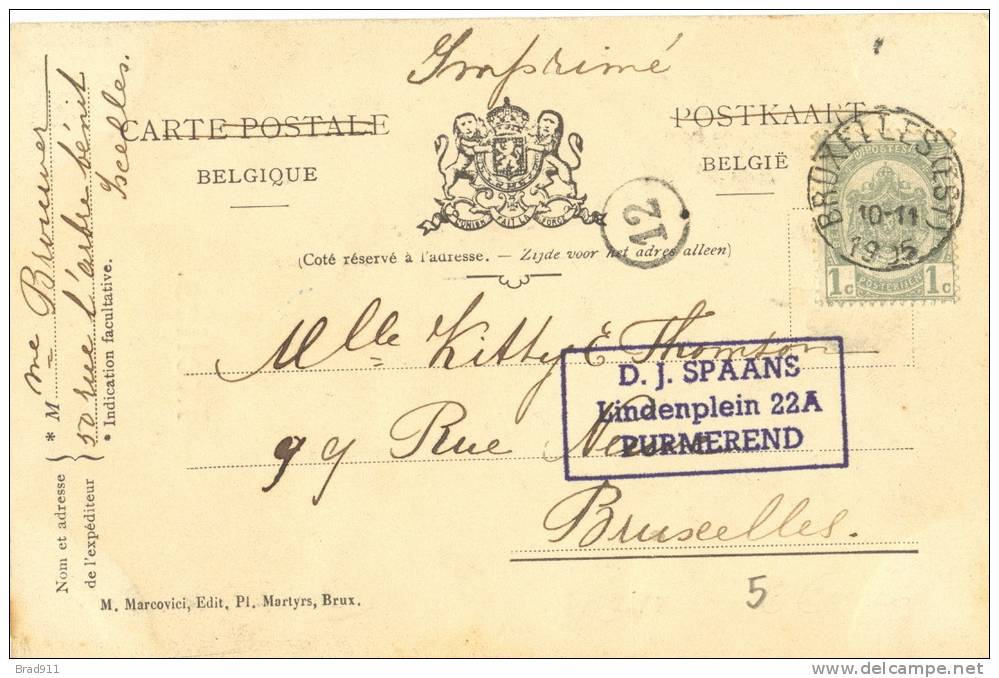 Imprimé
CARTE POSTALE
POSTKAART
BELGIQUE
BELGIË
L'UNION FAIT LA FORCE
BRUXELLES (OEST)
10-11
1905
POSTES
1c 1c
POSTERIJEN
12
(Coté réservé à l'adresse. — Zijde voor het adres alleen)
Mlle Kitty E Thomson
99 Rue
Bruxelles.
D. J. SPAANS
Lindenplein 22A
PURMEREND
5
* M me Brouwer
50 rue l'arbre bénit
Ixelles.
* Indication facultative.
Nom et adresse
de l'expéditeur
M. Marcovici, Edit, Pl. Martyrs, Brux.
Brad911
delcampe.net